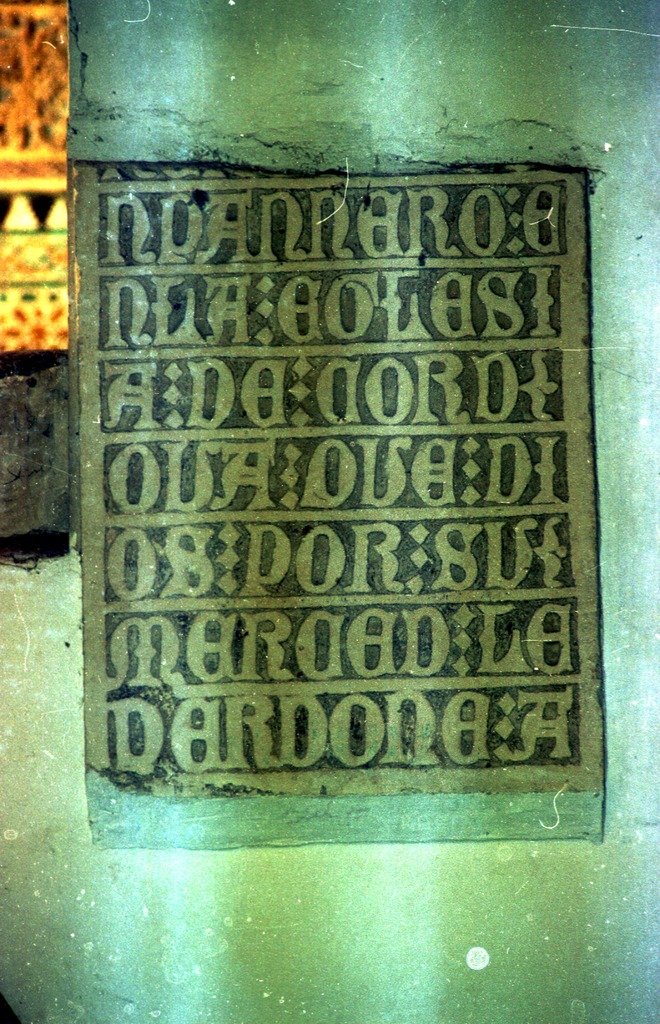 NPANNERO : E
NLA : EGLESI
A : DE : CORD
OUA : QUE : DI
OS : POR : SU
MERCED : LE
PERDONE : A